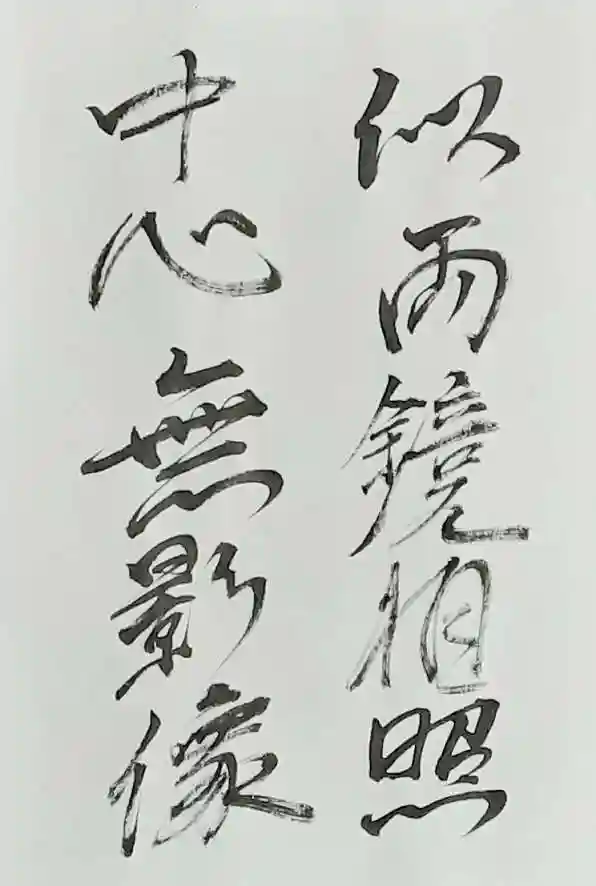 似兩鏡相照
中心無影像